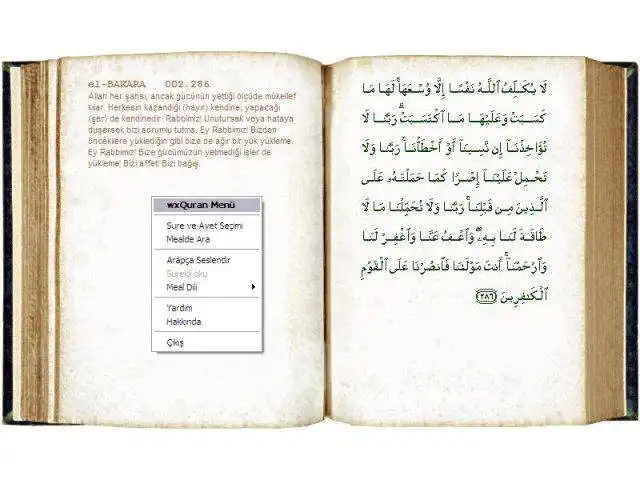 el-BAKARA 002.286
Allah her şahsı, ancak gücünün yettiği ölçüde mükellef
kılar. Herkesin kazandığı (hayır) kendine, yapacağı
(şer) de kendinedir. Rabbimiz! Unutursak veya hataya
düşersek bizi sorumlu tutma. Ey Rabbimiz! Bizden
öncekilere yüklediğin gibi bize de ağır bir yük yükleme.
Ey Rabbimiz! Bize gücümüzün yetmediği işler de
yükleme! Bizi affet! Bizi bağış.
wxQuran Menü
Sure ve Ayet Seçimi
Mealde Ara
Arapça Seslendir
Sürekli oku
Meal Dili
Yardım
Hakkında
Çıkış
لَا يُكَلِّفُ ٱللَّهُ نَفْسًا إِلَّا وُسْعَهَا ۚ لَهَا مَا
كَسَبَتْ وَعَلَيْهَا مَا ٱكْتَسَبَتْ ۗ رَبَّنَا لَا
تُؤَاخِذْنَآ إِن نَّسِينَآ أَوْ أَخْطَأْنَا ۚ رَبَّنَا وَلَا
تَحْمِلْ عَلَيْنَآ إِصْرًا كَمَا حَمَلْتَهُۥ عَلَى
ٱلَّذِينَ مِن قَبْلِنَا ۚ رَبَّنَا وَلَا تُحَمِّلْنَا مَا لَا
طَاقَةَ لَنَا بِهِۦ ۖ وَٱعْفُ عَنَّا وَٱغْفِرْ لَنَا
وَٱرْحَمْنَآ ۚ أَنتَ مَوْلَىٰنَا فَٱنصُرْنَا عَلَى ٱلْقَوْمِ
ٱلْكَٰفِرِينَ ٢٨٦